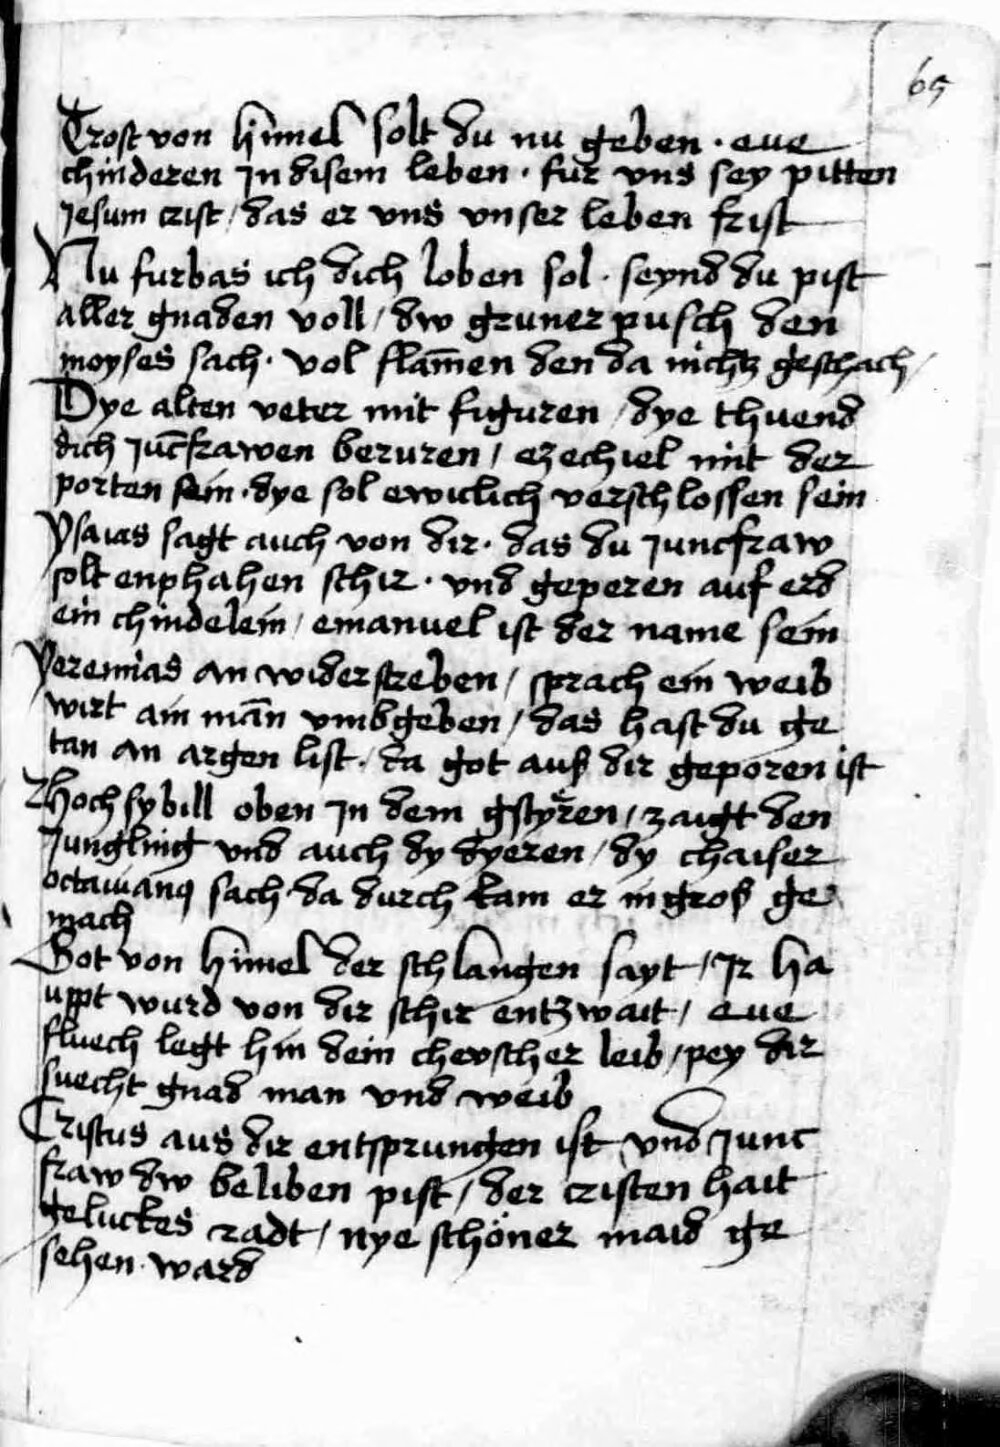 65
Trost von himel solt du nu geben · eue
chinderen in disem leben · fur vns sey pitten
Jesum crist / das er vns vnser leben frist
Nu furbas ich dich loben sol · seynd du pist
aller gnaden voll / dw gruner pusch den
moyses sach · vol flam̄en den da nichtz geschach /
Dye alten veter mit figuren / dye thuend
dich Juc̄frawen beruren / ezechiel mit der
porten sein · dye sol ewiclich verschlossen sein
Ysaias sagt auch von dir · das du Juncfraw
solt enphahen schir · vnd geperen auf erd
ein chindelein / emanuel ist der name sein
Yeremias an widerstreben / sprach ein weib
wirt ain man̄ vmbgeben / das hast du ge
tan an argen list / da got auß dir geporen ist
hoch sybill oben in dem gstyren / zaigt den
Jungling vnd auch dy dyeren / dy chaiser
octauianus sach da durch kam er in groß ge
mach
Got von himel der schlangen sayt / Ir ha
uppt wurd von dir schir entzwait / eue
fluech legt hin dein chewscher leib / pey dir
suecht gnad man vnd weib
Cristus aus dir entsprungen ist vnd Junc
fraw dw beliben pist / der cristenhait
geluckes radt / nye schöner maid ge
sehen ward